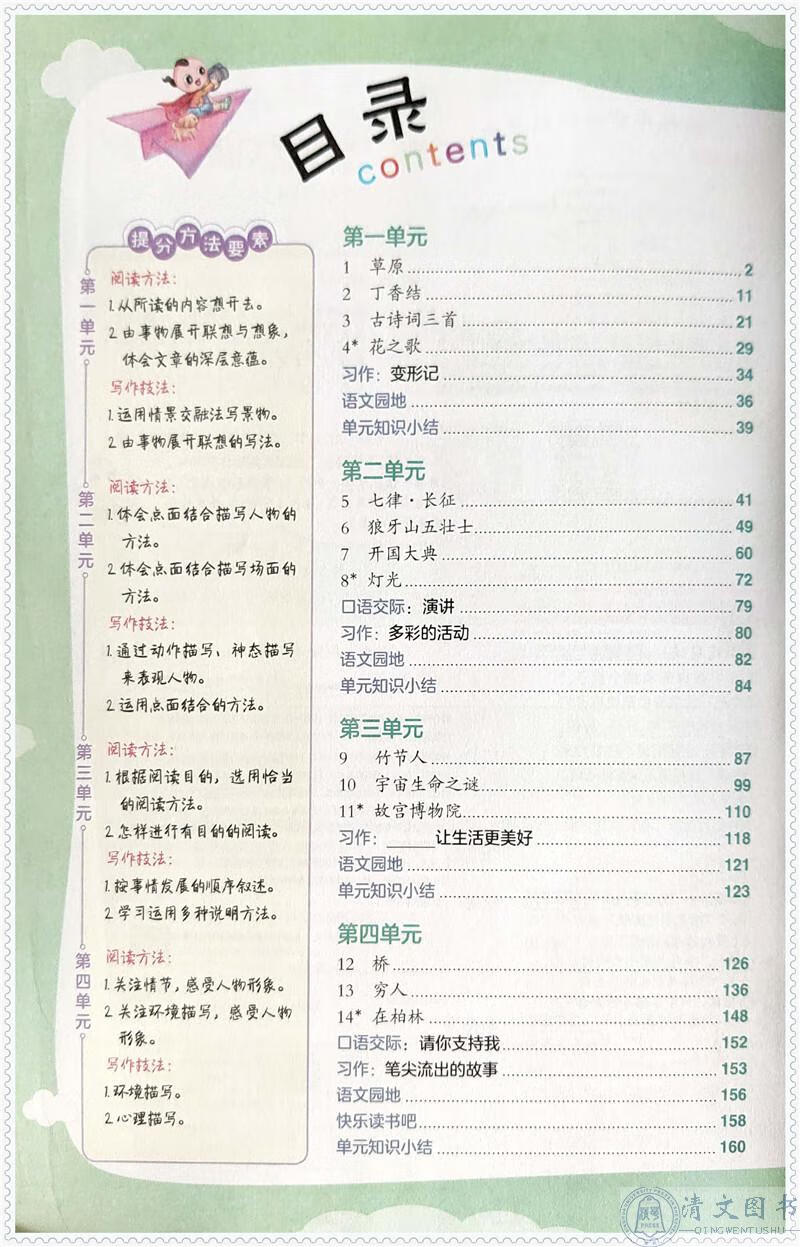 目录
contents
提分方法要素
第一单元
阅读方法：
1.从所读的内容想开去。
2.由事物展开联想与想象，
体会文章的深层意蕴。
写作技法：
1.运用情景交融法写景物。
2.由事物展开联想的写法。
第二单元
阅读方法：
1.体会点面结合描写人物的
方法。
2.体会点面结合描写场面的
方法。
写作技法：
1.通过动作描写、神态描写
来表现人物。
2.运用点面结合的方法。
第三单元
阅读方法：
1.根据阅读目的，选用恰当
的阅读方法。
2.怎样进行有目的的阅读。
写作技法：
1.按事情发展的顺序叙述。
2.学习运用多种说明方法。
第四单元
阅读方法：
1.关注情节，感受人物形象。
2.关注环境描写，感受人物
形象。
写作技法：
1.环境描写。
2.心理描写。
第一单元
1 草原 2
2 丁香结 11
3 古诗词三首 21
4* 花之歌 29
习作：变形记 34
语文园地 36
单元知识小结 39
第二单元
5 七律·长征 41
6 狼牙山五壮士 49
7 开国大典 60
8* 灯光 72
口语交际：演讲 79
习作：多彩的活动 80
语文园地 82
单元知识小结 84
第三单元
9 竹节人 87
10 宇宙生命之谜 99
11* 故宫博物院 110
习作：______让生活更美好 118
语文园地 121
单元知识小结 123
第四单元
12 桥 126
13 穷人 136
14* 在柏林 148
口语交际：请你支持我 152
习作：笔尖流出的故事 153
语文园地 156
快乐读书吧 158
单元知识小结 160
清文图书
QINGWENTUSHU